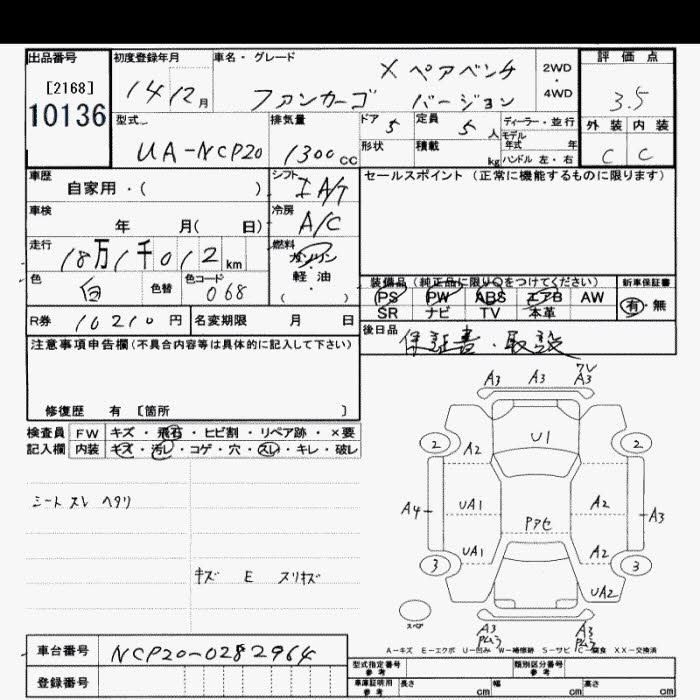 出品番号 初度登録年月 車名・グレード 評価点
[2168] 14 12月 X ペアベンチ 2WD・4WD 3.5
10136 ファンカーゴ バージョン
型式 排気量 ドア 5 定員 5人 ディーラー・並行 外装 内装
UA-NCP20 1300cc 形状 積載 kg モデル年式 年 C C
ハンドル 左・右
車歴 シフト セールスポイント (正常に機能するものに限ります)
自家用・( ) I A/T
車検 冷房
年 月( 日) A/C
走行 燃料
18万1千012km ガソリン・軽油
色 色替 色コード ( ) 装備品 (純正品に限り○をつけてください) 新車保証書
白 068 PS PW ABS エアB AW 有・無
SR ナビ TV 本革
R券 10210円 名変期限 月 日 後日品
保証書・取説
注意事項申告欄(不具合内容等は具体的に記入して下さい)
修復歴 有 [箇所 ]
検査員 FW キズ・飛石・ヒビ割・リペア跡・×要
記入欄 内装 キズ・汚レ・コゲ・穴・スレ・キレ・破レ
シート スレ ヘタリ
キズ E スリキズ
A3 A3 A3
2 U1 2
A2
A4 UA1 A2 A3
Pアセ
UA1 A2
3 3
UA2
スペア A3 A3
A-キズ E-エクボ U-凹み W-補修跡 S-サビ C-腐食 XX-交換済
車台番号 NCP20-0282964
登録番号
型式指定番号 参考 類別区分番号 参考
車庫証明用 参考 長さ cm 幅 cm 高さ cm